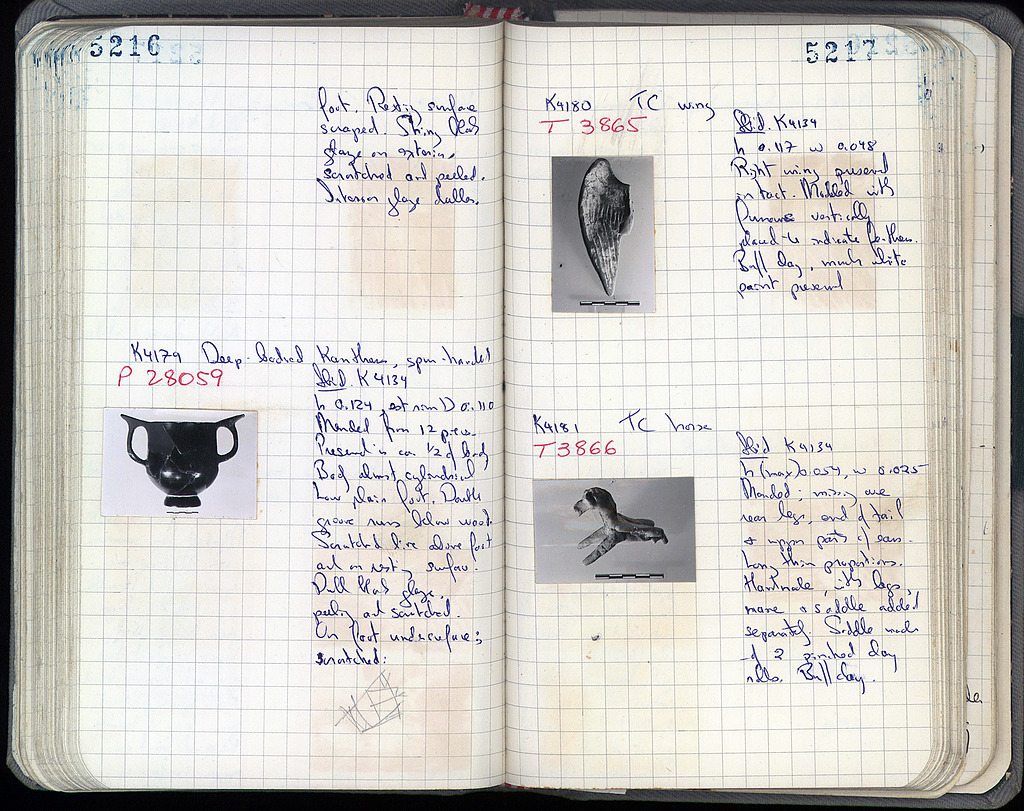 5216
foot. Resting surface
scraped. Shiny black
glaze on exterior,
scratched and peeled.
Interior glaze duller.
K4179 Deep-bodied Kantharos, spur-handled
P 28059
Ibid. K4134
h 0.124, est rim D 0.110
Mended from 12 pieces.
Preserved is ca. 1/2 of body
Body almost cylindrical
Low plain foot. Double
groove runs below
Scratched line above foot
and on resting surface.
Dull black glaze,
peeling and scratched.
On foot undersurface;
scratched:
5217
K4180 TC wing
T 3865
Ibid. K4134
h 0.117 w 0.048
Right wing preserved
intact. Modelled with
vertically
placed to indicate feathers.
Buff clay, much white
paint preserved
K4181 TC horse
T3866
Ibid K4134
h (max) 0.054, w 0.025
Mended; missing are
rear legs, end of tail
& upper parts of ears.
Long thin proportions.
Handmade, with legs,
mane & saddle added
separately. Saddle made
of 2 pinched clay
rolls. Buff clay.